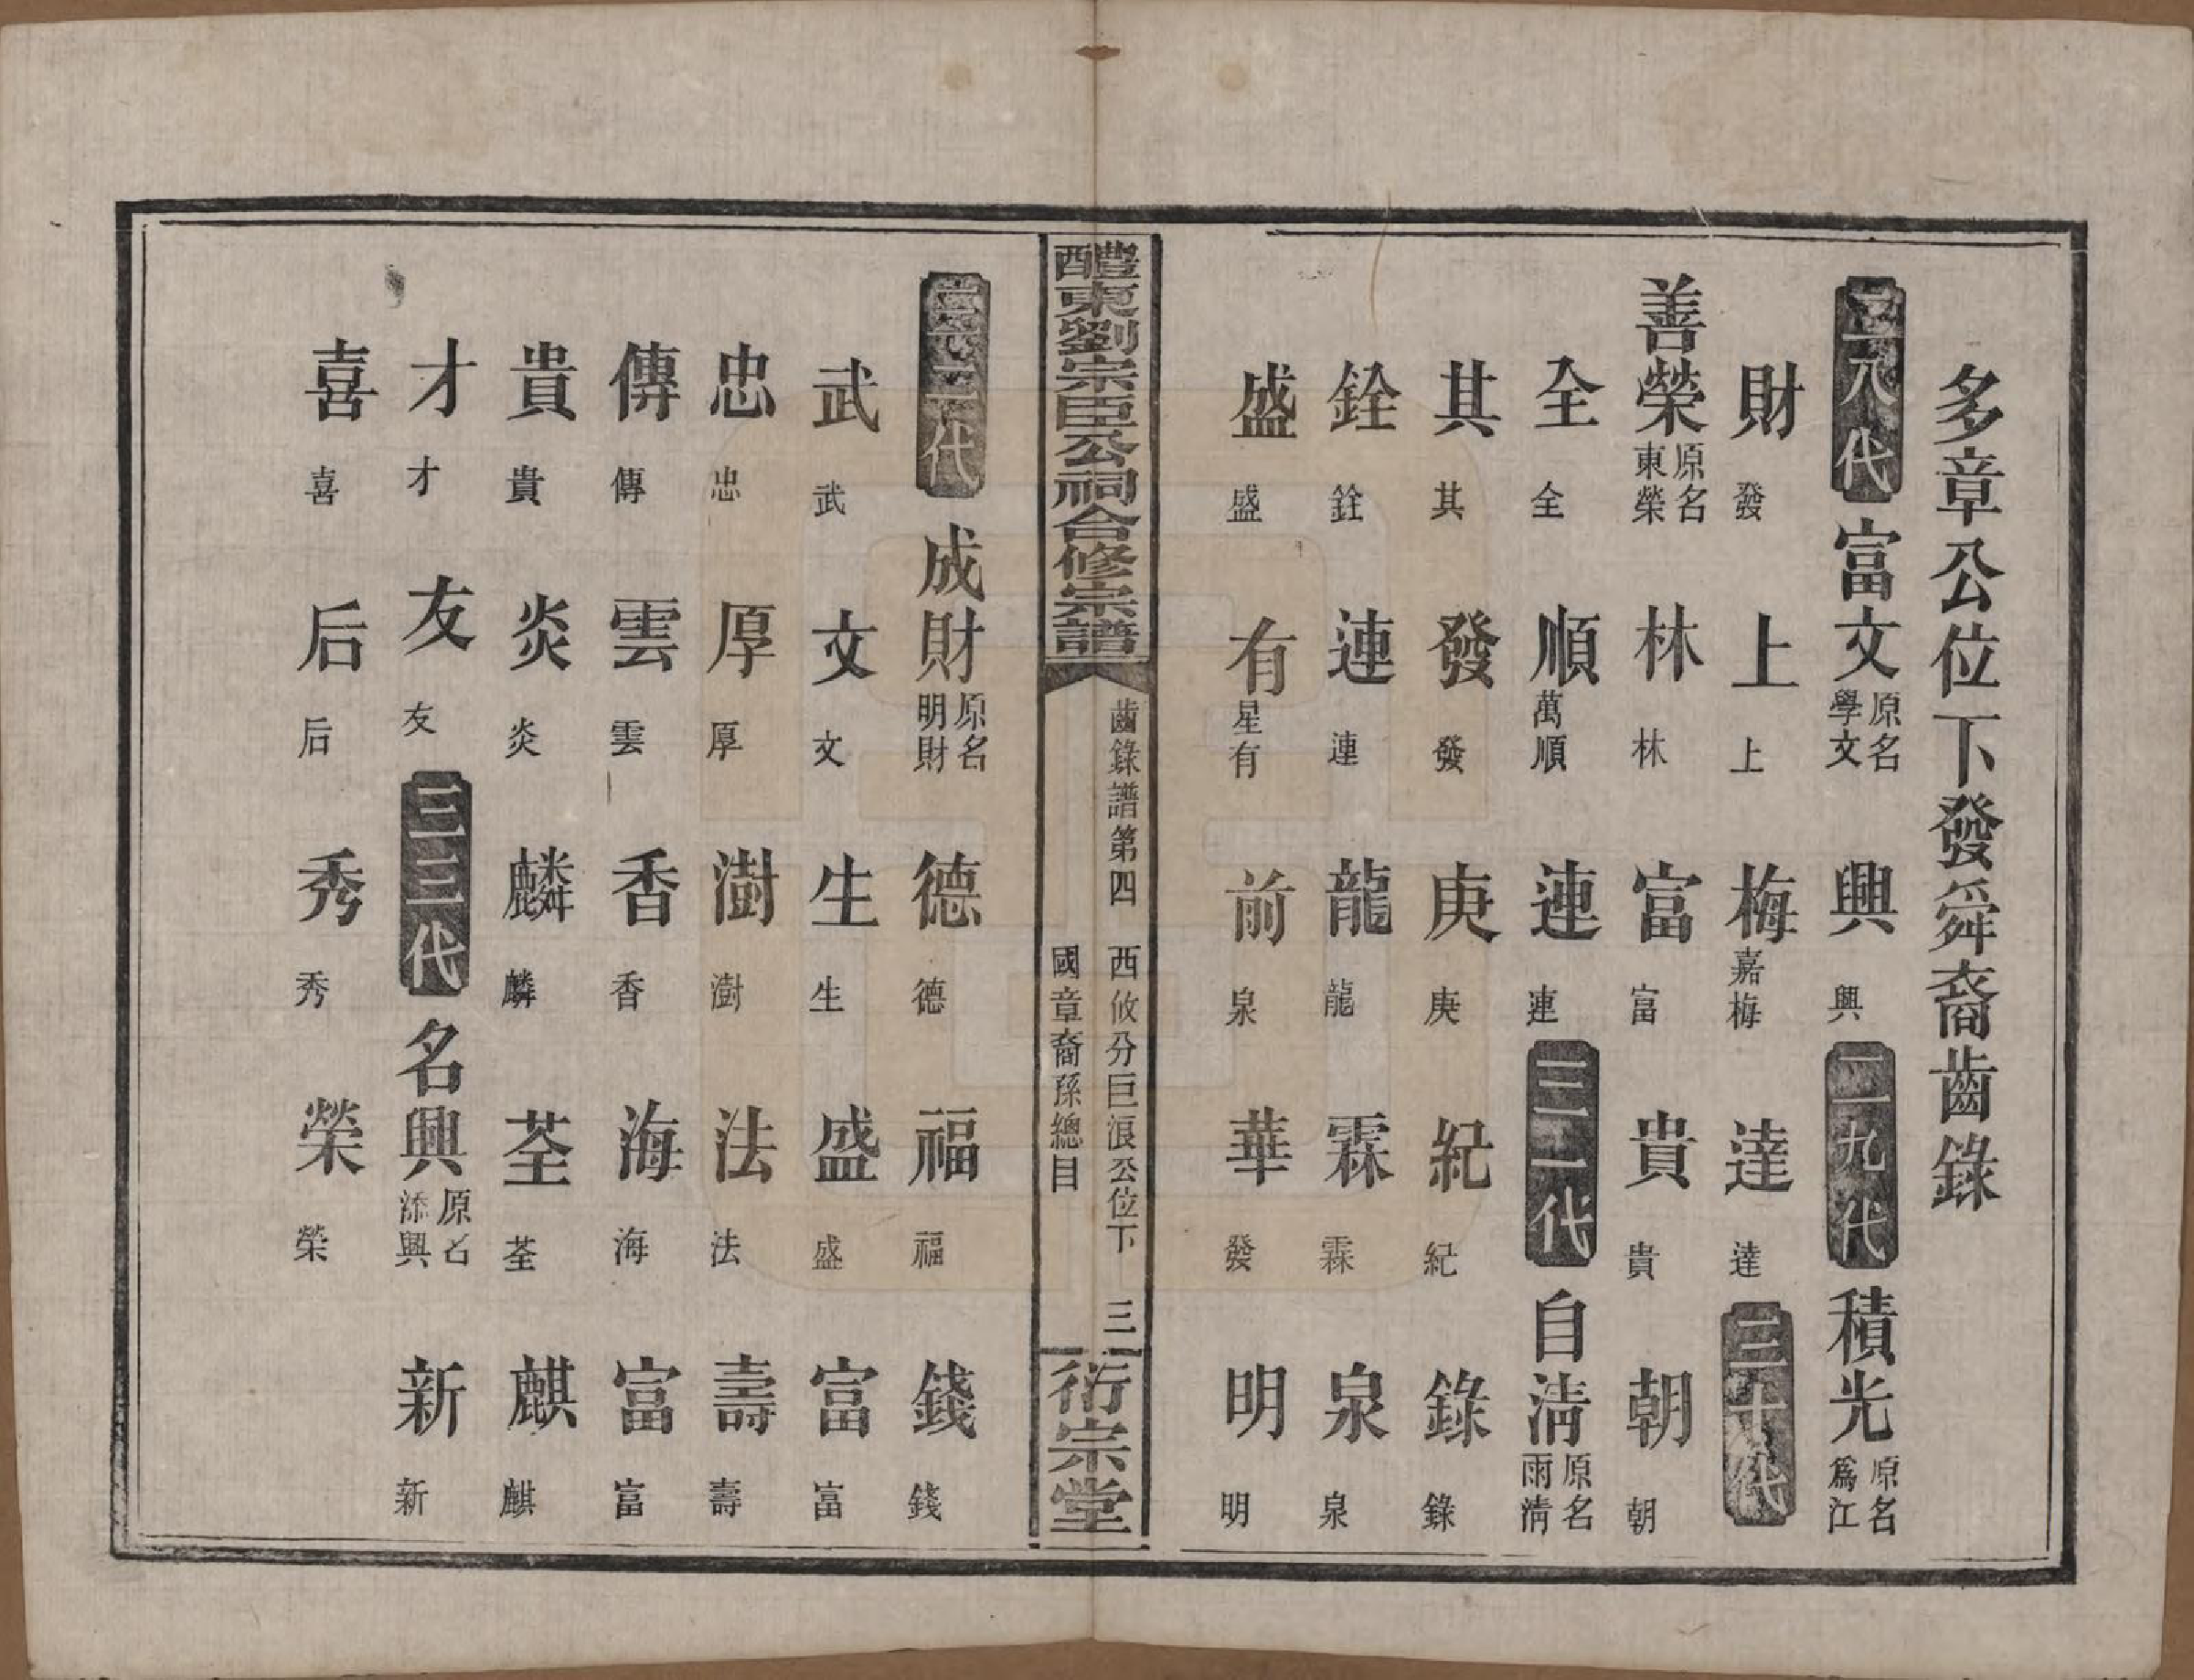 多章公位下發舜裔齒錄
二八代 富文 原名學文 興 興 二九代 積光 原名爲江
財 發 上 上 梅 嘉梅 達 達 三十代
善榮 原名東榮 林 林 富 富 貴 貴 朝 朝
全 全 順 萬順 連 連 三一代 自淸 原名雨淸
其 其 發 發 庚 庚 紀 紀 錄 錄
銓 銓 連 連 龍 龍 霖 霖 泉 泉
盛 盛 有 星有 前 泉 華 發 明 明
醴東劉宗臣公祠合修宗譜
齒錄譜第四 西攸分巨浪公位下
國章裔孫總目
三
衍宗堂
三二代 成財 原名明財 德 德 福 福 錢 錢
武 武 文 文 生 生 盛 盛 富 富
忠 忠 厚 厚 澍 澍 法 法 壽 壽
傳 傳 雲 雲 香 香 海 海 富 富
貴 貴 炎 炎 麟 麟 荃 荃 麒 麒
才 才 友 友 三三代 名興 原名添興 新 新
喜 喜 后 后 秀 秀 榮 榮